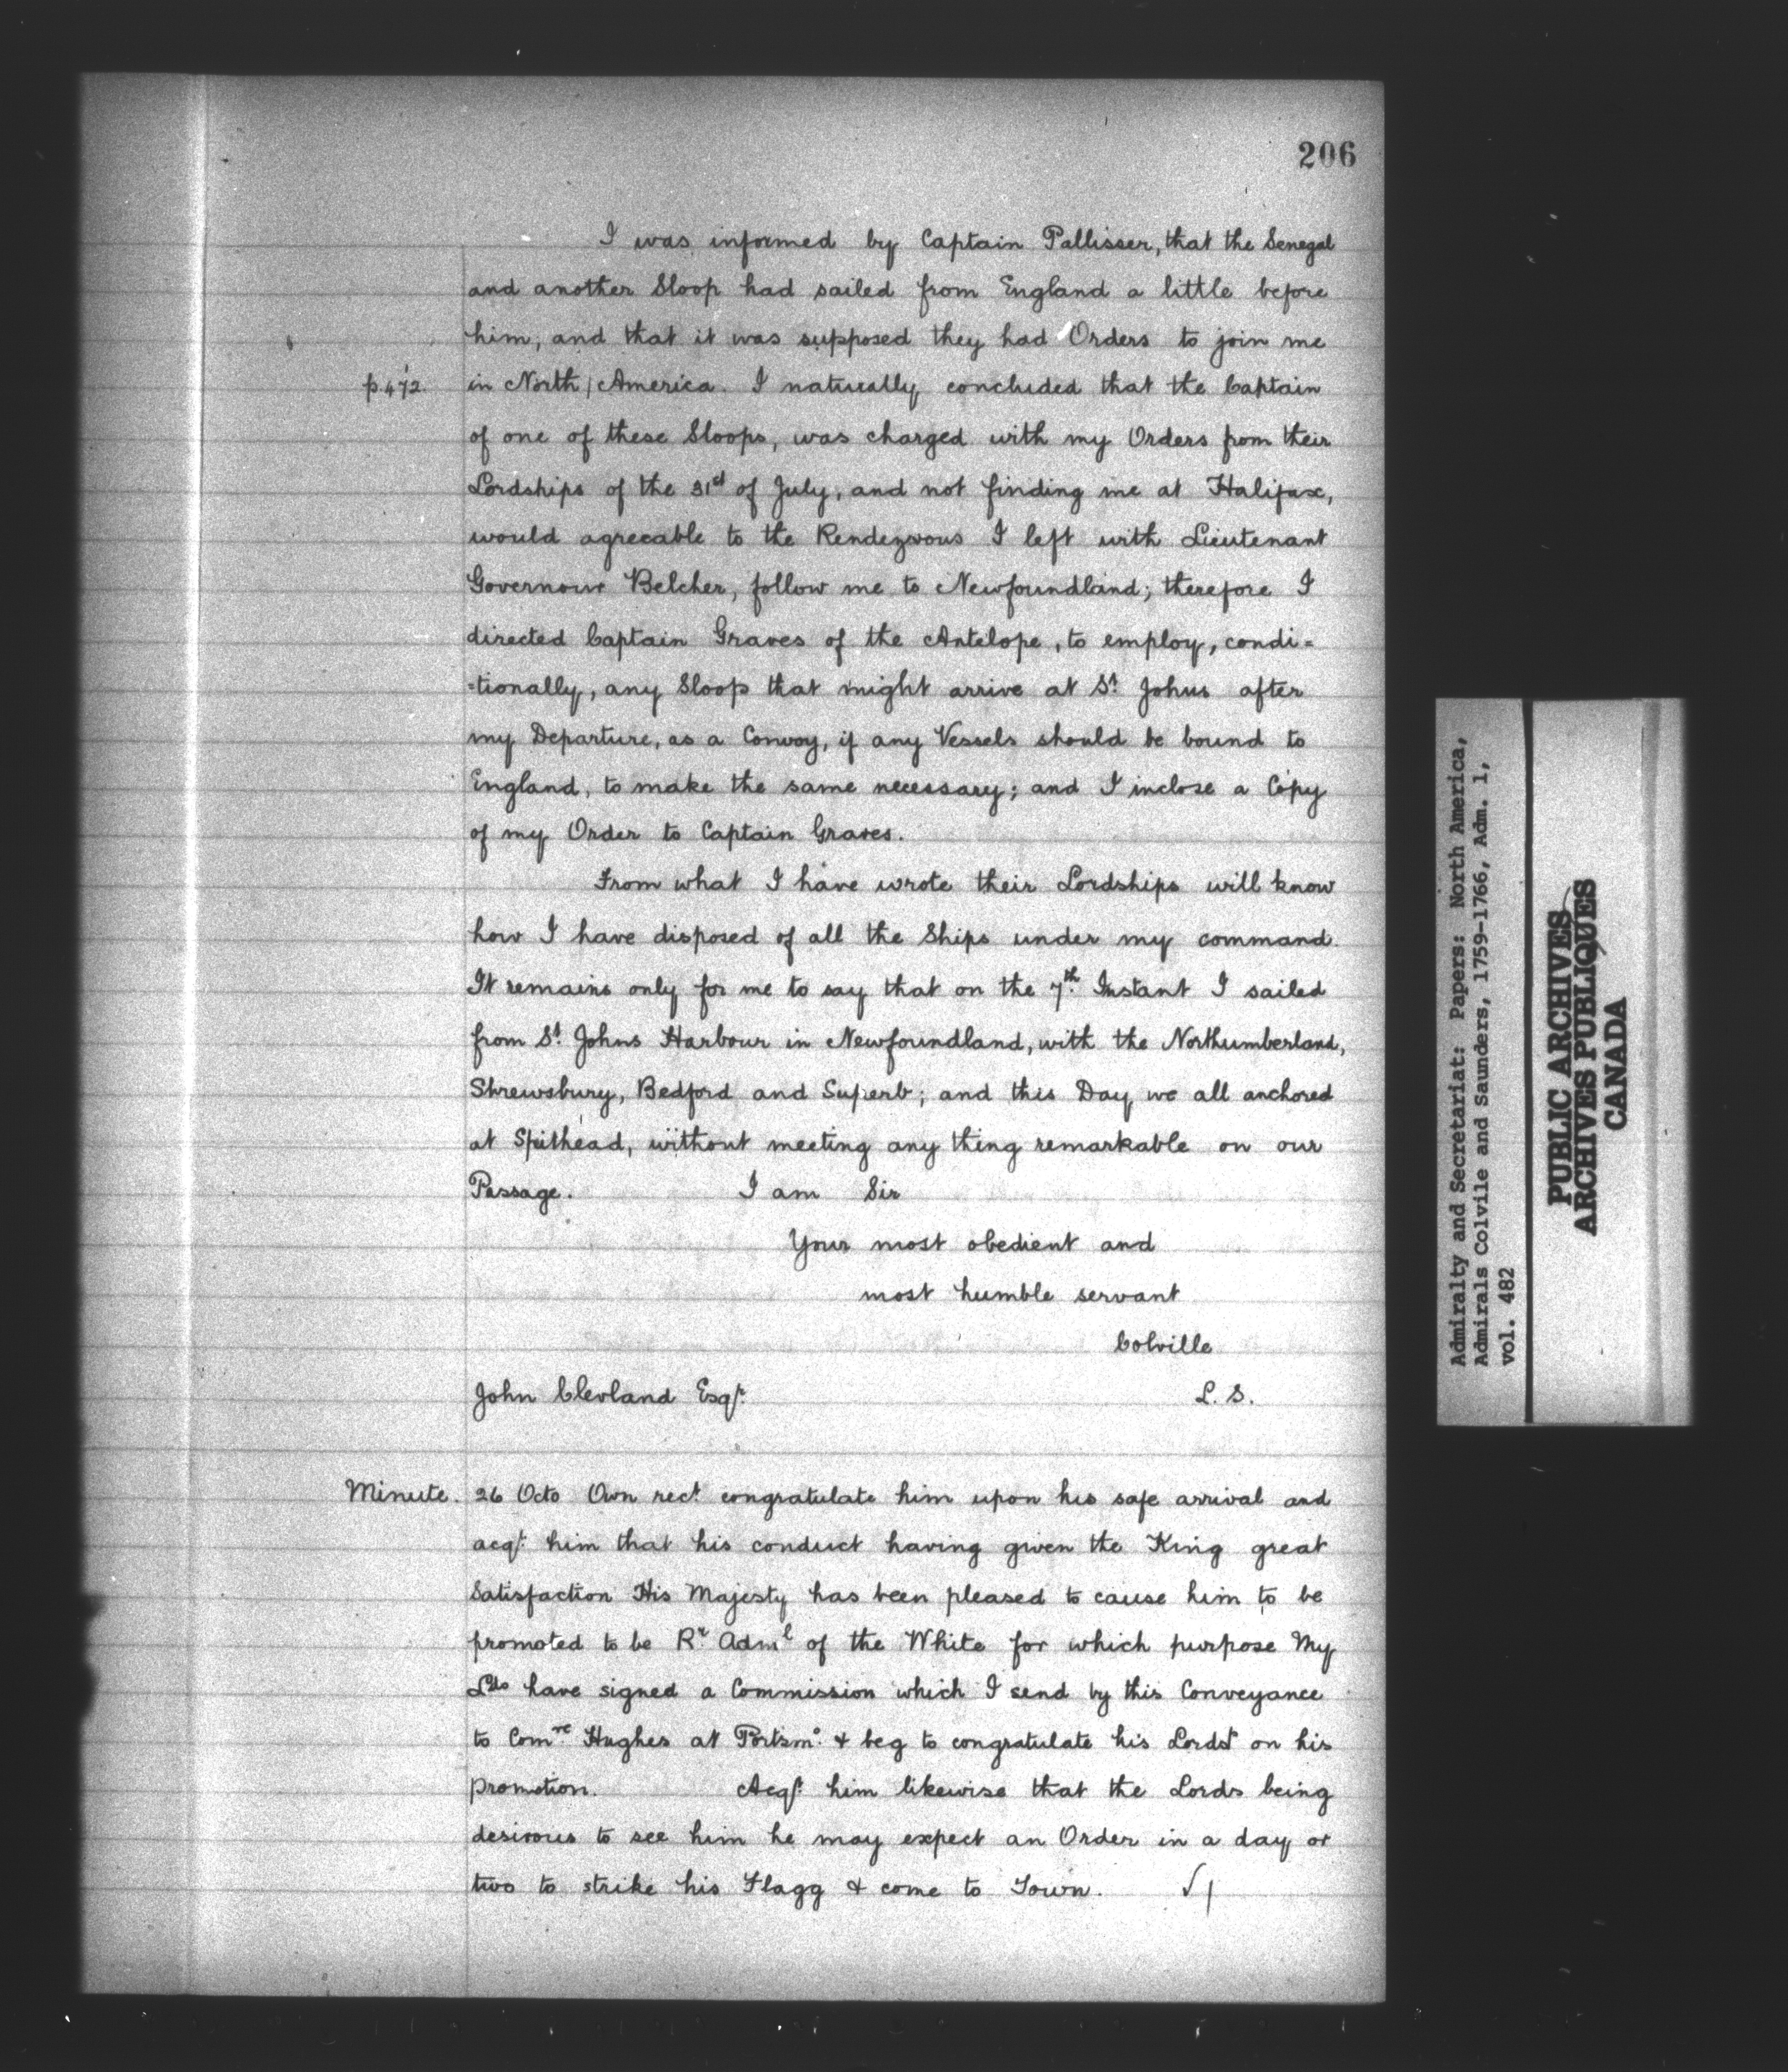 206
I was informed by Captain Pallisser, that the Senegal
and another Sloop had sailed from England a little before
him, and that it was supposed they had Orders to join me
p.472. in North / America. I naturally concluded that the Captain
of one of these Sloops, was charged with my Orders from their
Lordships of the 31st of July, and not finding me at Halifax,
would agreeable to the Rendezvous I left with Lieutenant
Governour Belcher, follow me to Newfoundland; therefore I
directed Captain Graves of the Antelope, to employ, condi=
=tionally, any Sloop that might arrive at St. Johns after
my Departure, as a Convoy, if any Vessels should be bound to
England, to make the same necessary; and I inclose a Copy
of my Order to Captain Graves.
From what I have wrote their Lordships will know
how I have disposed of all the Ships under my command.
It remains only for me to say that on the 7th. Instant I sailed
from St. Johns Harbour in Newfoundland, with the Northumberland,
Shrewsbury, Bedford and Superb; and this Day, we all anchored
at Spithead, without meeting any thing remarkable on our
Passage. I am Sir
Your most obedient and
most humble servant
Colville
John Clevland Esqr. L. S.
Minute. 26 Octo Own rect. congratulate him upon his safe arrival and
acqt. him that his conduct having given the King great
Satisfaction His Majesty has been pleased to cause him to be
promoted to be Rr. Adml of the White for which purpose My
Lds have signed a Commission which I send by this Conveyance
to Comre. Hughes at Portsmo. & beg to congratulate his Lordsp on his
promotion. Acqt. him likewise that the Lords being
desirous to see him he may expect an Order in a day or
two to strike his Flagg & come to Town.
Admiralty and Secretariat: Papers: North America,
Admirals Colvile and Saunders, 1759-1766, Adm. 1,
vol. 482
PUBLIC ARCHIVES
ARCHIVES PUBLIQUES
CANADA